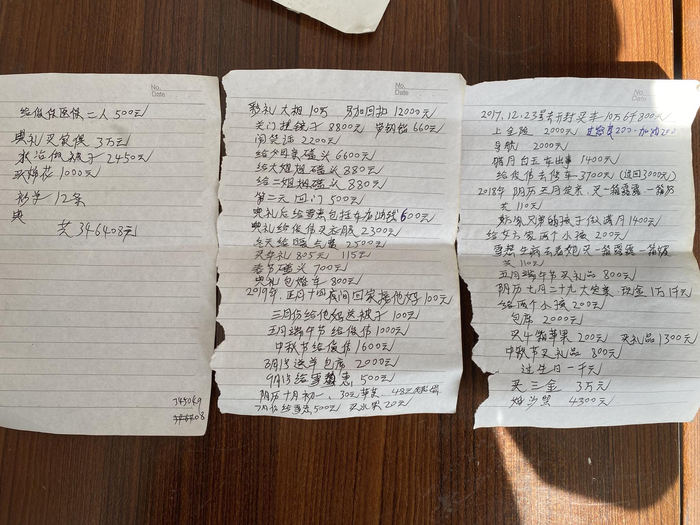 No.
Date
给俊佳医保二人 500元
典礼买家俱 3万元
水冶做被子 2450元
买棉花 1000元
彩伞 12条
典
共 346408元
No.
Date
彩礼大押 10万 另加回扣 12000元
关门提镜子 8800元 劳钢饴 660元
闹笑话 2200元
给父母亲磕头 6600元
给大姐姐磕头 880元
给二姐姐磕头 880元
第二天回门 500元
典礼后给雪惠包拉车 600元
典礼给俊俏买衣服 2300元
冬天给暖气费 2500元
买年礼 805元 115元
春节磕头 700元
典礼包婚车 800元
2019年,正月十四夜间回家接他好100元
三月份给他奶送被子 100元
五月端午节给俊俏 1000元
中秋节给俊俏 1600元
8月15送羊包席 2000元
9月15给雪惠 500元
阴历十月初一、30元苹菓、48元
7月份给雪惠 500元 买水果 20元
No.
Date
2017.12.23号去开封买车10万6千800元
上全险 2000元
导航 2000元
腊月白五车出事 1400元
给俊俏去修车 3700元 (退回3000元)
2018年 阴历正月定亲,买一箱露露一箱奶
共 110元
奶舅舅家的孩子做满月 1400元
给女方家两个小孩 200元
共 110元
五月端午节买礼品 800元
阴历七月二十九大定亲 现金 1万1千元
给两个小孩 200元
包席 2000元
买4箱苹果 200元 买礼品 1300元
中秋节买礼品 800元
过生日一千元
买三金 3万元
婚沙照 4300元